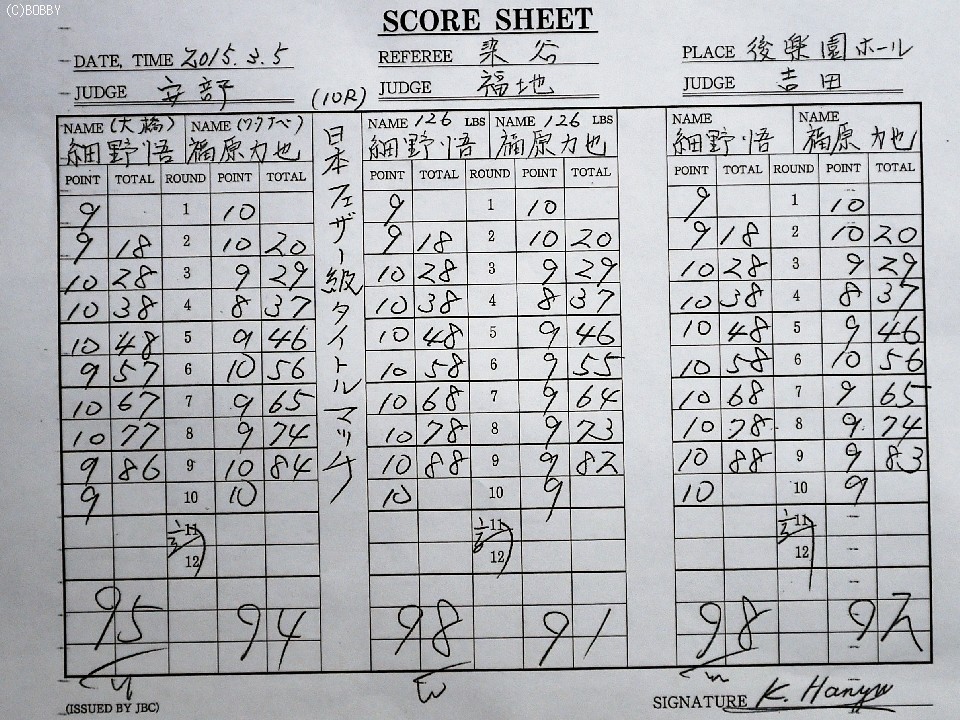 (C)BOBBY
SCORE SHEET
DATE, TIME 2015.3.5 REFEREE 染谷 PLACE 後楽園ホール
JUDGE 安部 (10R) JUDGE 福地 JUDGE 吉田
NAME (大橋) NAME (ワタナベ) NAME 126 LBS NAME 126 LBS NAME NAME
細野悟 福原力也 細野悟 福原力也 細野悟 福原力也
日本フェザー級タイトルマッチ
POINT TOTAL ROUND POINT TOTAL POINT TOTAL ROUND POINT TOTAL POINT TOTAL ROUND POINT TOTAL
9 1 10 9 1 10 9 1 10
9 18 2 10 20 9 18 2 10 20 9 18 2 10 20
10 28 3 9 29 10 28 3 9 29 10 28 3 9 29
10 38 4 8 37 10 38 4 8 37 10 38 4 8 37
10 48 5 9 46 10 48 5 9 46 10 48 5 9 46
9 57 6 10 56 10 58 6 9 55 10 58 6 10 56
10 67 7 9 65 10 68 7 9 64 10 68 7 9 65
10 77 8 9 74 10 78 8 9 73 10 78 8 9 74
9 86 9 10 84 10 88 9 9 82 10 88 9 9 83
9 10 10 10 10 9 10 10 9
11 11 11
12 12 12
95 94 98 91 98 92
(ISSUED BY JBC) SIGNATURE K. Hanyu